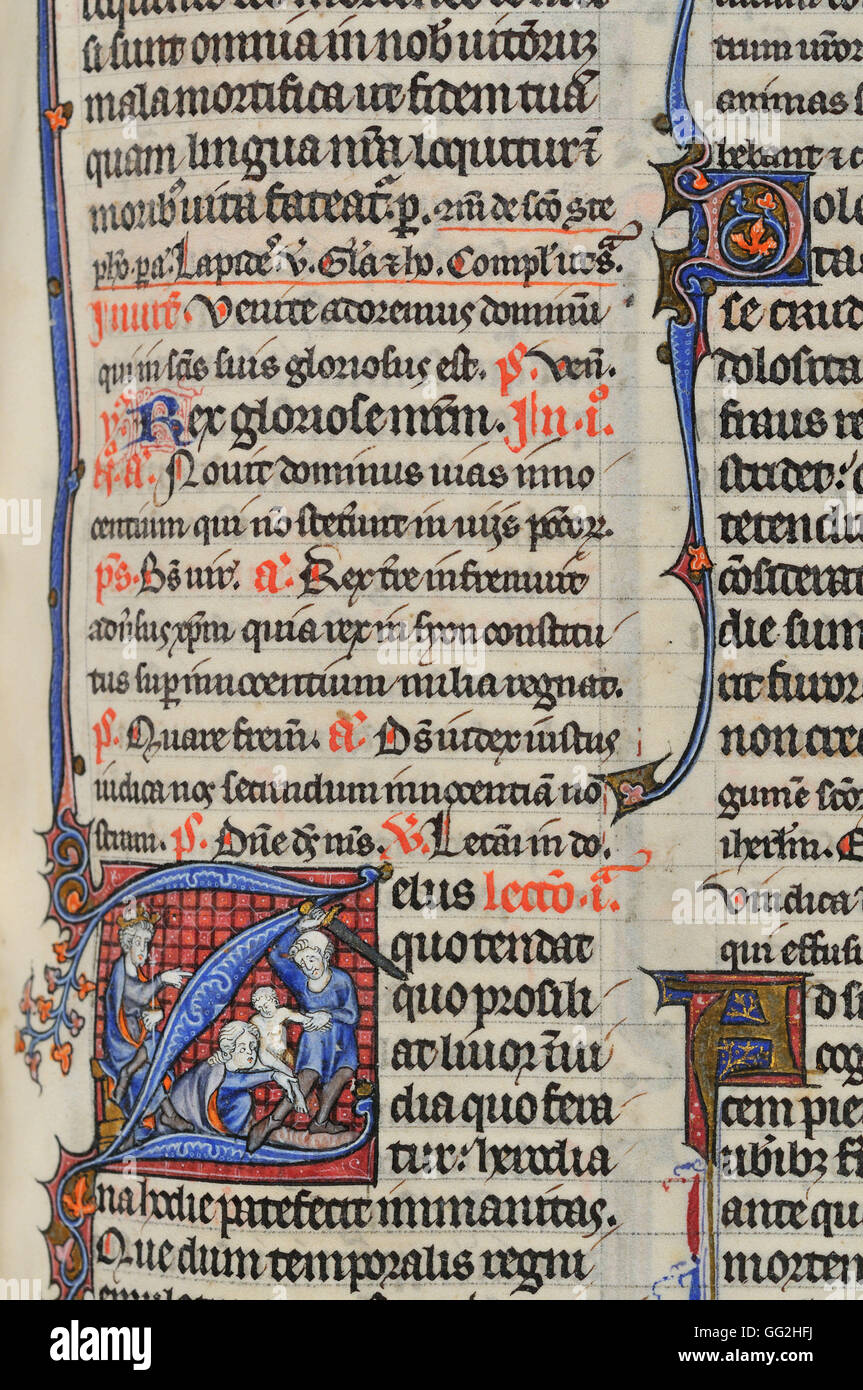 si sunt omnia in nob' uitiorum
mala mortifica ut fidem tuā
quam lingua nr̄a loquitur ⁊
morib' uita fateat᷑. p. mm̄ de sc̄o ste
ph'o. Lapide'. v. Gl'a ⁊ ho. Compl'
Inuit̄. Venite adoremus dominū
qui in sc̄is suis gloriosus est. ps. Ven̄.
Rex gloriose mr̄m. In .i°.
a. Nouit dominus uias inno
centium qui nō steterunt in uijs pecc̄or̄.
ps. Bs̄ uir. a. Rex tr̄e infremuit
aduersus xp̄m quia rex in syon constitu
tus super innocentium milia regnat.
ps. Quare frem̄. a. Ds̄ iudex iustus
iudica nos secundum innocentiā no
stram. ps. Dn̄e ds̄ ms̄. V. Letam̄i in do.
Zelus lectō. i.ª
quo tendat
quo prosili
at liuor ⁊ inui
dia quo fera
tur: herodia
na hodie patefecit immanitas.
Que dum temporalis regni
animas s
bebant ⁊ c
Dolo
ta
se crud
dolosita
finus re
tetendi
cōsiderat
die sum
it furor
non cre
gumē sc̄or
iherl'm. E
Vindica
qui effusi
Ad s
cog
tem pie
ante qu
mortem
alamy
GG2HFJ
www.alamy.com